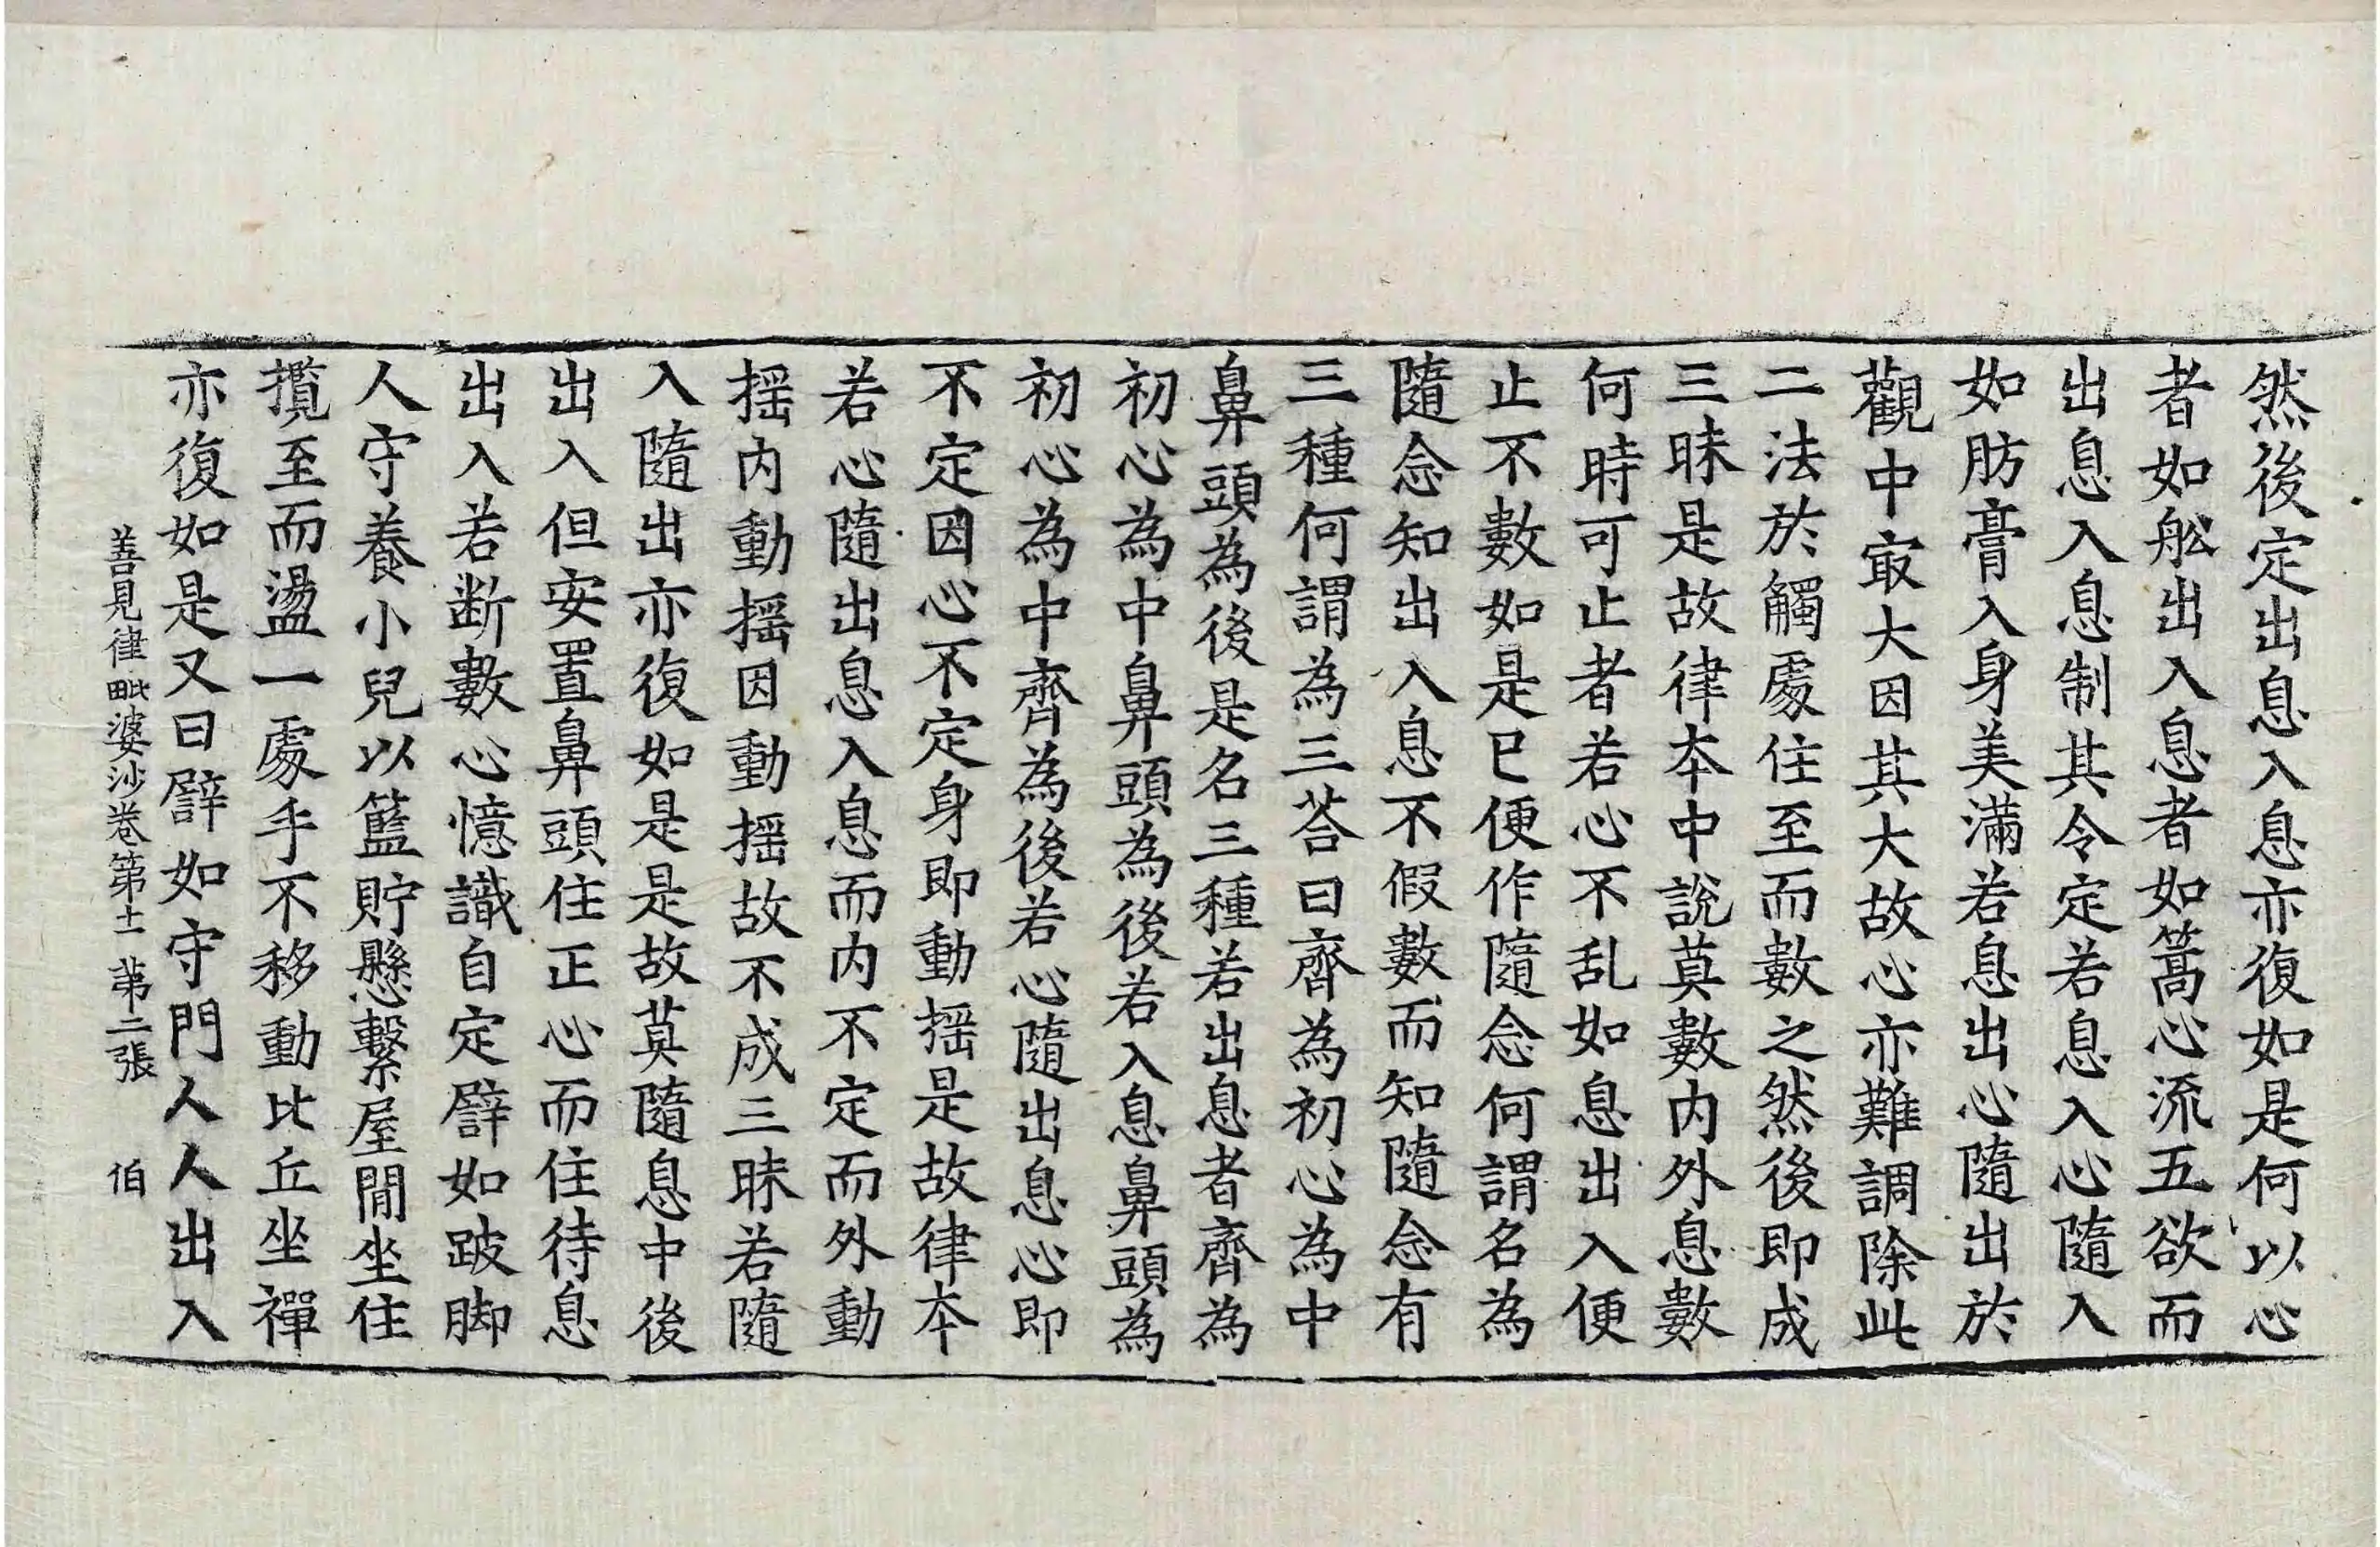 然後定出息入息亦復如是何以心
者如舩出入息者如篙心流五欲而
出息入息制其令定若息入心隨入
如肪膏入身美滿若息出心隨出於
觀中㝡大因其大故心亦難調除此
二法於觸處住至而數之然後即成
三昧是故律本中說莫數内外息數
何時可止者若心不乱如息出入便
止不數如是已便作隨念何謂名為
隨念知出入息不假數而知隨念有
三種何謂為三荅曰齊為初心為中
鼻頭為後是名三種若出息者齊為
初心為中鼻頭為後若入息鼻頭為
初心為中齊為後若心隨出息心即
不定因心不定身即動揺是故律本
若心隨出息入息而内不定而外動
揺内動揺因動揺故不成三昧若隨
入隨出亦復如是是故莫隨息中後
出入但安置鼻頭住正心而住待息
出入若断數心憶識自定譬如跛脚
人守養小兒以籃貯懸繫屋閒坐住
攬至而盪一處手不移動比丘坐禪
亦復如是又曰譬如守門人人出入
善見律毗婆沙卷第十一 第二張 伯